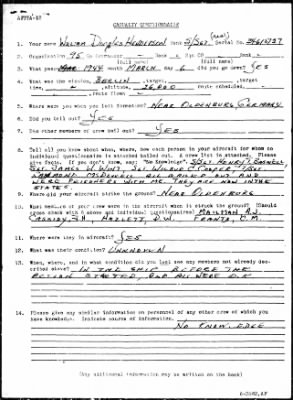 AFPPA-27
CASUALTY QUESTIONNAIRE
1. Your name Walton Douglas Henderson Rank S/Sgt. Serial No.
(full name)
2. Organization 95 Gp Commander Rank Sqn CO Rank
(full name)
3. What year 1944 month MARCH day 6 did you go down? YES
4. What was the mission, BERLIN, target, target
time, altitude, 26,000 route scheduled, route
5. Where were you when you left formation? NEAR OLDENBURG GERMANY
6. Did you bail out? YES
7. Did other members of crew bail out? YES
8. Tell all you know about when, where, how each person in your aircraft for whom no
individual questionnaire is attached bailed out. A crew list is attached. Please
give facts. If you don't know, say: "No Knowledge". S/SGT. HENRY T.
SGT. JAMES W.
ALL BAILED OUT AND
WERE PRISONERS WITH ME. THEY ARE NOW IN THE
STATES.
9. Where did your aircraft strike the ground? NEAR OLDENBURG
10. What members of your crew were in the aircraft when it struck the ground? (Should
cross check with 8 above and individual questionnaires) MAILMAN A.J.
CASSIDY F.A., HAZLETT, D.W. FRANTZ, C.M.
11. Where were they in aircraft? YES
12. What was their condition? UNKNOWN
13. When, where, and in what condition did you last see any members not already des-
cribed above? IN THE SHIP BEFORE THE
ACTION STARTED, AND ALL WERE O.K.
14. Please give any similar information on personnel of any other crew of which you
have knowledge. Indicate source of information.
NO KNOWLEDGE
(Any additional information may be written on the back)